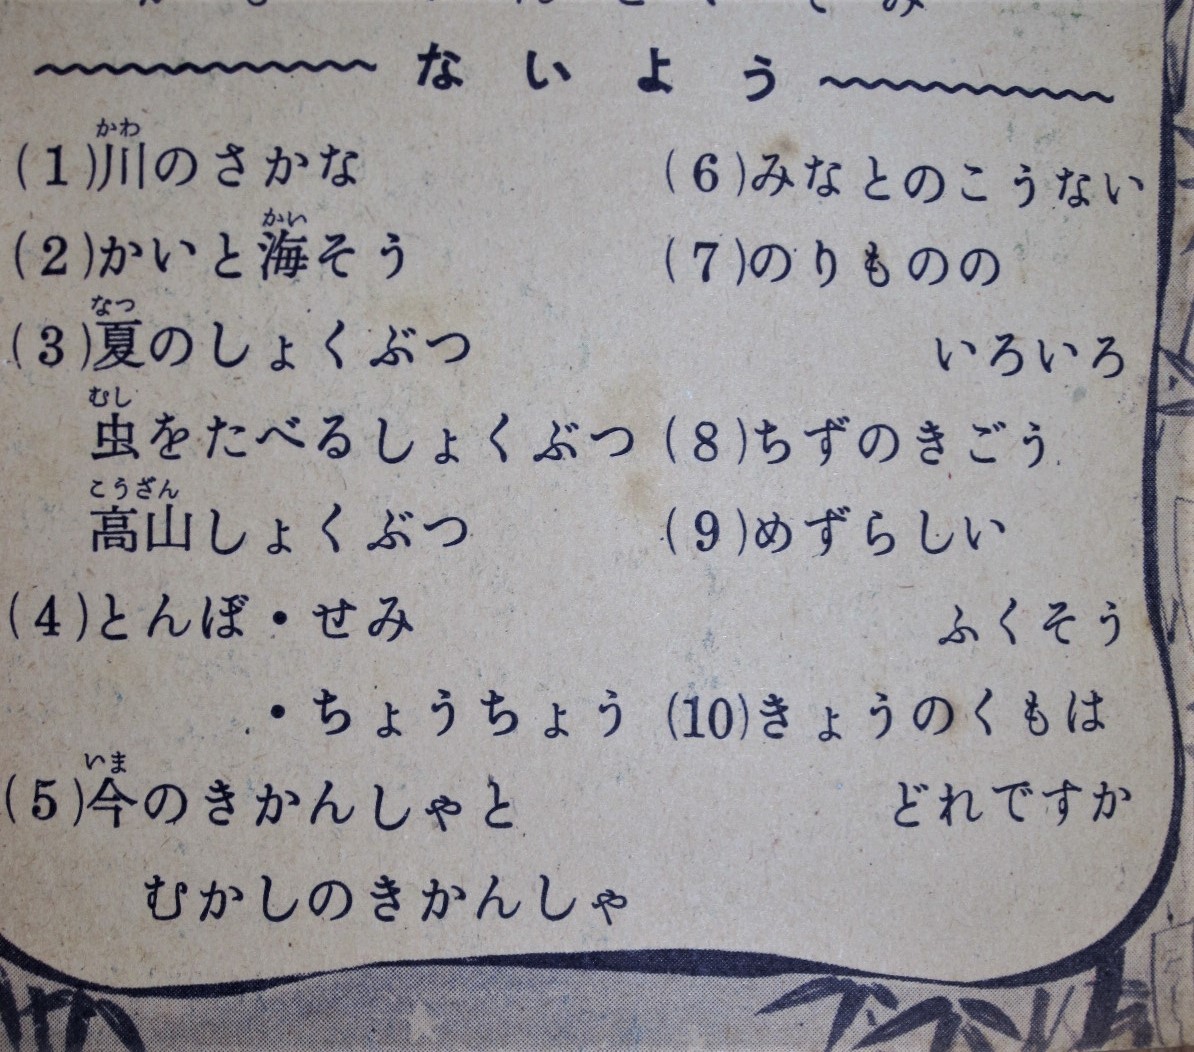 ないよう
(1)川のさかな
(2)かいと海そう
(3)夏のしょくぶつ
虫をたべるしょくぶつ
高山しょくぶつ
(4)とんぼ・せみ
・ちょうちょう
(5)今のきかんしゃと
むかしのきかんしゃ
(6)みなとのこうない
(7)のりものの
いろいろ
(8)ちずのきごう
(9)めずらしい
ふくそう
(10)きょうのくもは
どれですか